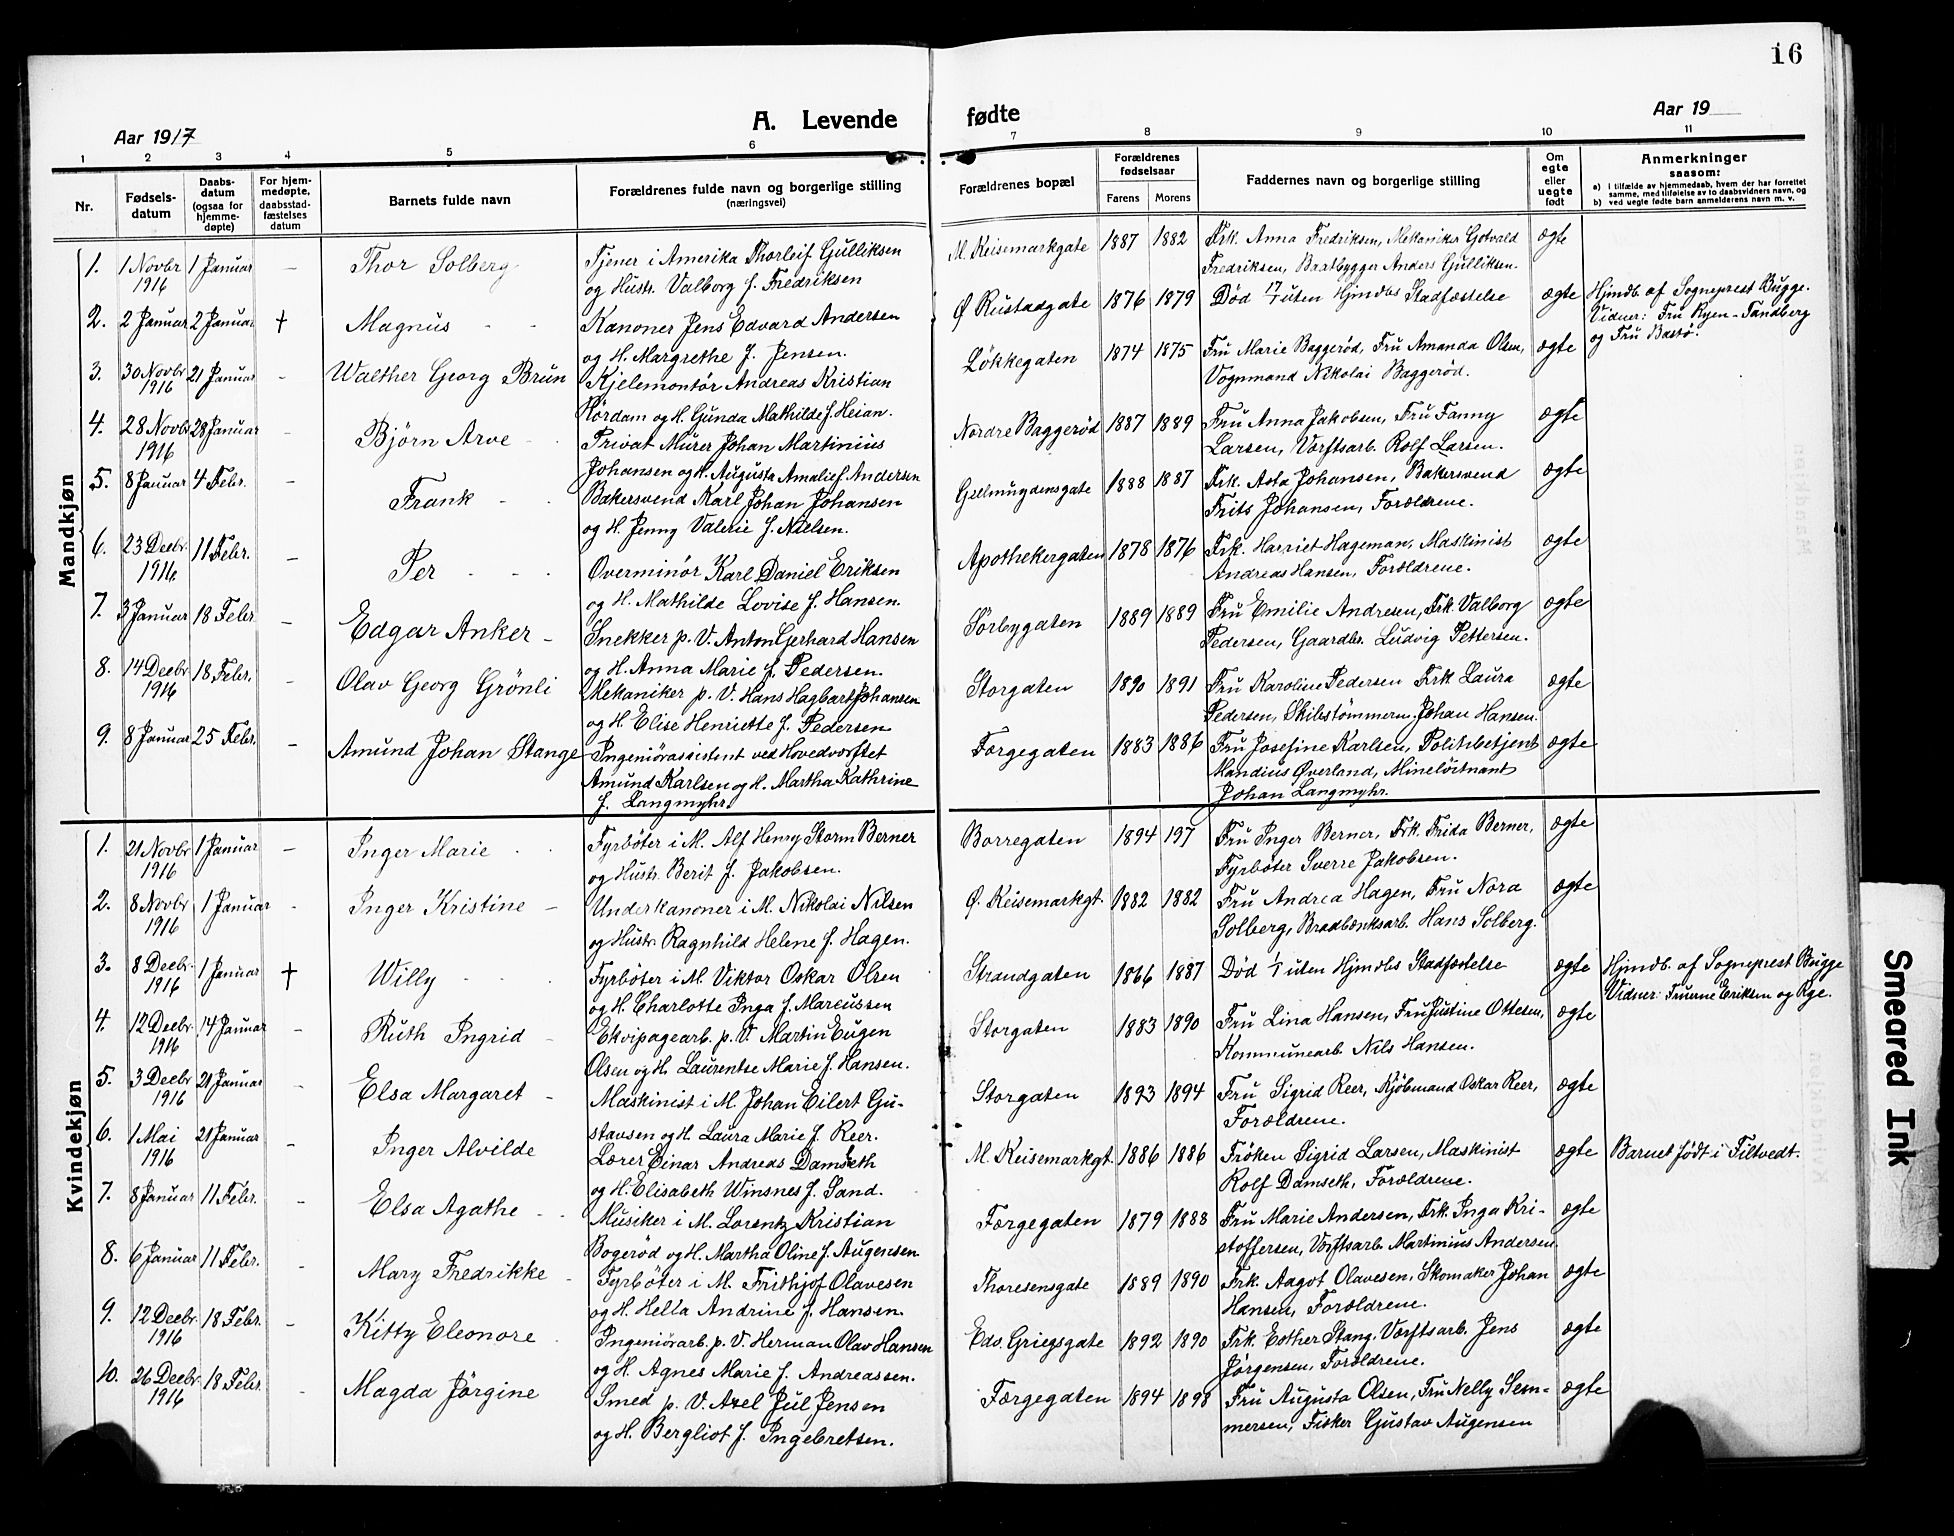 16
Aar 1917
A. Levende fødte
Aar 19
1 2 3 4 5 6 7 8 9 10 11
Nr.
Fødsels-
datum
Daabs-
datum
(ogsaa for
hjemme-
døpte)
For hjem-
medøpte,
daabsstad-
fæstelses
datum
Barnets fulde navn
Forældrenes fulde navn og borgerlige stilling
(næringsvei)
Forældrenes bopæl
Forældrenes
fødselsaar
Farens Morens
Faddernes navn og borgerlige stilling
Om
egte
eller
uegte
født
Anmerkninger
saasom:
a) i tilfælde av hjemmedaab, hvem der har forrettet
samme, med tilføielse av to daabsvidners navn, og
b) ved uegte fødte barn anmelderens navn m. v.
Mandkjøn
1. 1 Novbr 1 Januar – Thor Solberg Tjener i Amerika Thorleif Gulliksen M. Keisemarkgate 1887 1882 Frk. Anna Fredriksen, Mekaniker Gotvald ægte
1916 og Hustr. Valborg f. Fredriksen Fredriksen, Baatbygger Anders Gulliksen.
2. 2 Januar 2 Januar † Magnus - - Kanoner Jens Edvard Andersen Ø Rustadgate 1876 1879 Død 17/1 uten Hjmdbs Stadfæstelse ægte Hjmdb. af Sogneprest Bugge.
og H. Margrethe f. Jensen. Vidner: Fru Ryen-Tandberg
og Fru Bastø.
3. 30 Novbr 21 Januar - Walther Georg Brun Kjelemontör Andreas Kristian Løkkegaten 1874 1875 Fru Marie Baggerød, Fru Amanda Olsen, ægte
1916 Rördam og H. Gunda Mathilde f. Heian. Vognmand Nikolai Baggerød.
4. 28 Novbr 28 Januar - Björn Arve - Privat Murer Johan Martinius Nordre Baggerød 1887 1889 Fru Anna Jakobsen, Fru Fanny ægte
1916 Johansen og H. Augusta Amalie f. Andersen Larsen, Værftsarb. Rolf Larsen.
5. 8 Januar 4 Febr. - Frank - - Bakersvend Karl Johan Johansen Gjellmuydensgate 1888 1887 Frk. Asta Johansen, Bakersvend ægte
og H. Jenny Valerie f. Nielsen. Frits Johansen, Forældrene.
6. 23 Decbr. 11 Febr. – Per - - - Overminör Karl Daniel Eriksen Apothekergaten 1878 1876 Frk. Harriet Hageman, Maskinist ægte
1916. og H. Mathilde Lovise f. Hansen. Andreas Hansen, Forældrene.
7. 3 Januar 18 Febr. – Edgar Anker – Snekker p. V. Anton Gerhard Hansen Sörbygaten 1889 1889 Fru Emilie Andresen, Frk. Valborg ægte
og H. Anna Marie f. Pedersen. Pedersen, Gaardbr. Ludvig Pettersen.
8. 14 Decbr 18 Febr. - Olav Georg Grönli Mekaniker p. V. Hans Hagbart Johansen Storgaten 1890 1891 Fru Karoline Pedersen Frk. Laura ægte
1916 og H. Elise Henriette f. Pedersen Pedersen, Skibstømmerm. Johan Hansen.
9. 8 Januar 25 Febr. – Amund Johan Stange Ingeniörassistent ved Hovedværftet Færgegaten 1883 1886 Fru Josefine Karlsen, Politibetjent ægte
Amund Karlsen og H. Martha Kathrine Mandius Øverland, Mineløitnant
f. Langmyhr. Johan Langmyhr.
Kvindekjøn
1. 21 Novbr 1 Januar – Inger Marie - - Fyrböter i M. Alf Henry Storm Berner Borregaten 1894 197 Fru Inger Berner, Frk. Frida Berner, ægte
1916 og Hustr. Berit f. Jakobsen. Fyrböter Sverre Jakobsen.
2. 8 Novbr 1 Januar - Inger Kristine – Underkanoner i M. Nikolai Nilsen Ø. Keisemarkgt. 1882 1882 Fru Andrea Hagen, Fru Nora ægte
1916. og Hustr. Ragnhild Helene f. Hagen. Solberg, Brødbænksarb. Hans Solberg.
3. 8 Decbr. 1 Januar † Willy - - - Fyrböter i M. Viktor Oskar Olsen Strandgaten 1866 1887 Død 1/1 uten Hjmdbs Stadfæstelse ægte Hjmdb. af Sogneprest Bugge
1916 og H. Charlotte Inga f. Marcussen Vidner: Fruerne Eriksen og Rye.
4. 12 Decbr. 14 Januar - Ruth Ingrid – Ekvipagearb. p. V. Martin Eugen Storgaten 1883 1890 Fru Lina Hansen, Fru Justine Ottesen, ægte
1916 Olsen og H. Laurentse Marie f. Hansen. Kommunearb. Nils Hansen.
5. 3 Decbr 21 Januar - Elsa Margaret – Maskinist i M. Johan Eilert Gu- Storgaten 1893 1894 Fru Sigrid Reer, Kjöbmand Oskar Reer, ægte
1916 stavsen og H. Laura Marie f. Reer. Forældrene.
6. 1 Mai 21 Januar - Inger Alvilde Lærer Einar Andreas Damseth M. Keisemarkgt. 1886 1886 Fröken Sigrid Larsen, Maskinist ægte Barnet født i Filtvedt.
1916 og H. Elisabeth Winsnes f. Sand. Rolf Damseth, Forældrene.
7. 8 Januar 11 Febr. - Elsa Agathe - - Musiker i M. Lorentz Kristian Færgegaten 1879 1888 Fru Marie Andersen, Frk. Inga Kri- ægte
Bogeröd og H. Martha Oline f. Augensen stoffersen, Værftsarb. Martinius Andersen.
8. 6 Januar 11 Febr. - Mary Fredrikke - Fyrböter i M. Frithjof Olavesen Thoresensgate 1889 1890 Frk. Aagot Olavesen, Skomaker Johan ægte
og H. Hella Andrine f. Hansen. Hansen, Forældrene.
9. 12 Decbr. 18 Febr. – Kitty Eleonore - Ingeniörarb. p. V. Herman Olav Hansen Edv. Griegsgate 1892 1890 Frk. Esther Stang, Værftsarb. Jens ægte
1916 og H. Agnes Marie f. Andreassen. Jörgensen, Forældrene.
10. 26 Decbr. 18 Febr. - Magda Jörgine Smed p. V. Axel Jul Jensen Færgegaten 1894 1898 Fru Augusta Olsen, Fru Nelly Sem- ægte
1916 og H. Bergliot f. Ingebretsen. mersen, Fisker Gustav Augensen
Smeared Ink